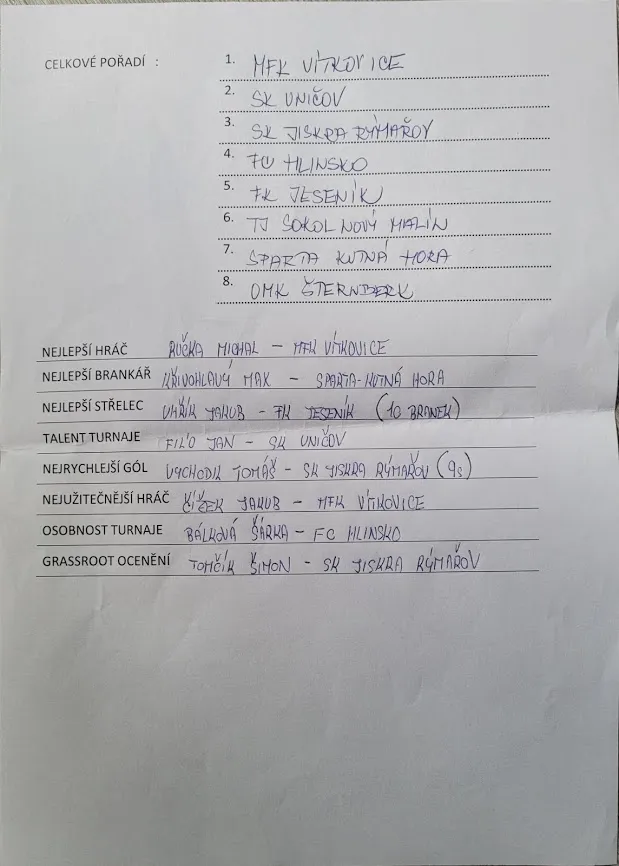 CELKOVÉ POŘADÍ :
1. MFK VÍTKOVICE
2. SK UNIČOV
3. SK JISKRA RÝMAŘOV
4. FC HLINSKO
5. FK JESENÍK
6. TJ SOKOL NOVÝ MALÍN
7. SPARTA KUTNÁ HORA
8. OMK ŠTERNBERK
NEJLEPŠÍ HRÁČ RUČKA MICHAL - MFK VÍTKOVICE
NEJLEPŠÍ BRANKÁŘ KŘIVOHLAVÝ MAX - SPARTA-KUTNÁ HORA
NEJLEPŠÍ STŘELEC JAKUB - FK JESENÍK (10 BRANEK)
TALENT TURNAJE FILO JAN - SK UNIČOV
NEJRYCHLEJŠÍ GÓL VYCHODIL TOMÁŠ - SK JISKRA RÝMAŘOV (9s)
NEJUŽITEČNĚJŠÍ HRÁČ ČÍŽEK JAKUB - MFK VÍTKOVICE
OSOBNOST TURNAJE BÁLKOVÁ ŠÁRKA - FC HLINSKO
GRASSROOT OCENĚNÍ TOMČÍK ŠIMON - SK JISKRA RÝMAŘOV